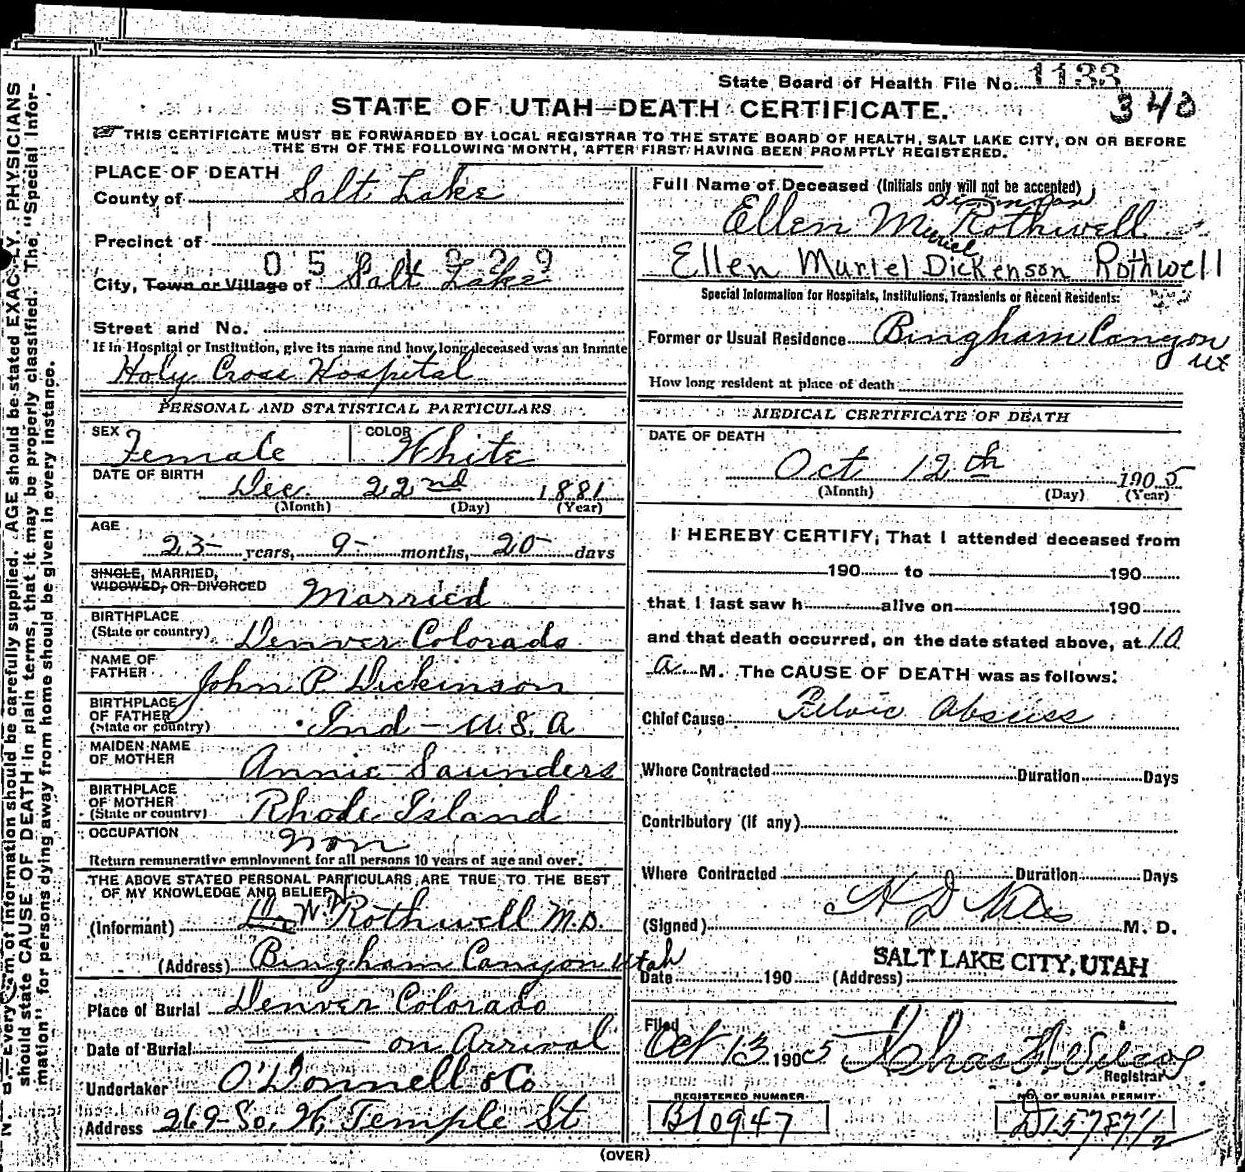 State Board of Health File No. 1133
340
STATE OF UTAH—DEATH CERTIFICATE.
THIS CERTIFICATE MUST BE FORWARDED BY LOCAL REGISTRAR TO THE STATE BOARD OF HEALTH, SALT LAKE CITY, ON OR BEFORE
THE 5TH OF THE FOLLOWING MONTH, AFTER FIRST HAVING BEEN PROMPTLY REGISTERED.
PLACE OF DEATH
County of Salt Lake
Precinct of
05 1929
City, Town or Village of Salt Lake
Street and No.
If in Hospital or Institution, give its name and how long deceased was an Inmate
Holy Cross Hospital
PERSONAL AND STATISTICAL PARTICULARS
SEX Female COLOR White
DATE OF BIRTH Dec. 22nd 1881
(Month) (Day) (Year)
AGE
23 years, 9 months, 20 days
SINGLE, MARRIED,
WIDOWED, OR DIVORCED Married
BIRTHPLACE
(State or country) Denver Colorado
NAME OF
FATHER John P. Dickinson
BIRTHPLACE
OF FATHER
(State or country) Ind - U.S.A
MAIDEN NAME
OF MOTHER Annie Saunders
BIRTHPLACE
OF MOTHER
(State or country) Rhode Island
OCCUPATION non
Return remunerative employment for all persons 10 years of age and over.
THE ABOVE STATED PERSONAL PARTICULARS ARE TRUE TO THE BEST
OF MY KNOWLEDGE AND BELIEF
(Informant) W. Rothwell M.D.
(Address) Bingham Canyon Utah
Place of Burial Denver Colorado
Date of Burial on Arrival
Undertaker O'Donnell & Co
Address 269 So. W. Temple St
Full Name of Deceased (Initials only will not be accepted)
Ellen Muriel Rothwell
Ellen Muriel Dickenson Rothwell
Special Information for Hospitals, Institutions, Transients or Recent Residents:
Former or Usual Residence Bingham Canyon
Ut
How long resident at place of death
MEDICAL CERTIFICATE OF DEATH
DATE OF DEATH
Oct 12th 1905
(Month) (Day) (Year)
I HEREBY CERTIFY, That I attended deceased from
190 to 190
that I last saw h alive on 190
and that death occurred, on the date stated above, at 10
a. M. The CAUSE OF DEATH was as follows:
Chief Cause Pelvic Abscess
Where Contracted Duration Days
Contributory (if any)
Where Contracted Duration Days
(Signed) M. D.
Date 190 (Address) SALT LAKE CITY, UTAH
Filed
Oct 13 1905 Chas
Registrar
REGISTERED NUMBER
B10947
NO. OF BURIAL PERMIT
D15787 1/2
(OVER)
N. B.—Every item of information should be carefully supplied. AGE should be stated EXACTLY. PHYSICIANS
should state CAUSE OF DEATH in plain terms, that it may be properly classified. The "Special Infor-
mation" for persons dying away from home should be given in every instance.